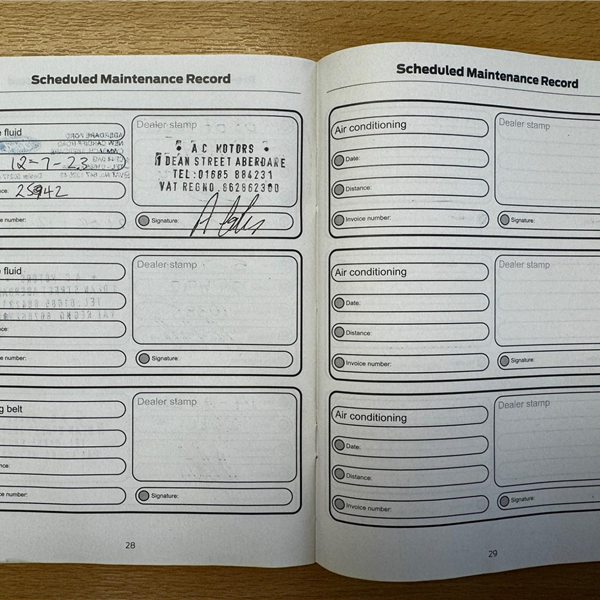 Scheduled Maintenance Record
fluid
12-7-23
nce:
ce number:
Dealer stamp
A C MOTORS
1 DEAN STREET ABERDARE
TEL:01685 884231
VAT REGNO.862862300
Signature:
fluid
nce:
ce number:
Dealer stamp
Signature:
g belt
nce:
ce number:
Dealer stamp
Signature:
28
Scheduled Maintenance Record
Air conditioning
Date:
Distance:
Invoice number:
Dealer stamp
Signature:
Air conditioning
Date:
Distance:
Invoice number:
Dealer stamp
Signature:
Air conditioning
Date:
Distance:
Invoice number:
Dealer stamp
Signature:
29